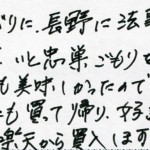 ぶりに、長野に法
、いと忠巣、ごもり
も美味しかったので
も買って帰り、好
楽天から買入します